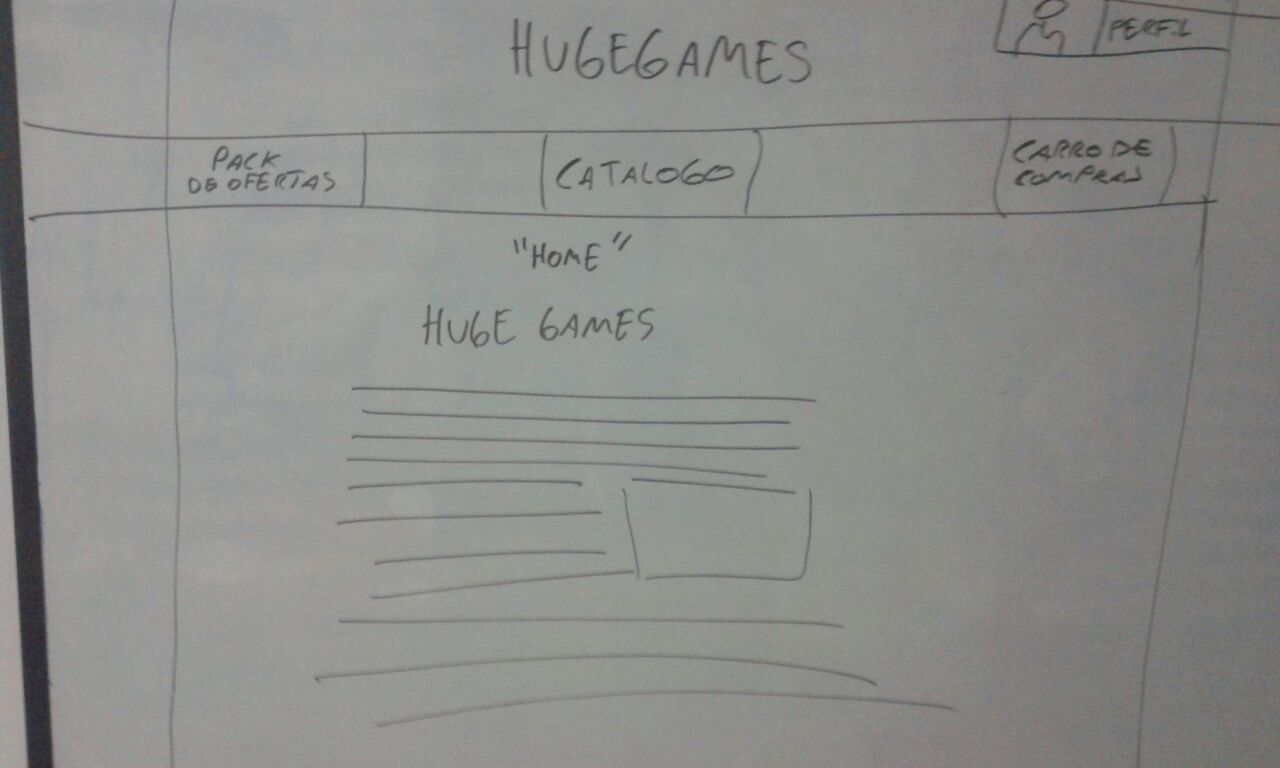 HUGEGAMES
PERFIL
PACK
DE OFERTAS
CATALOGO
CARRO DE
COMPRAS
"HOME"
HUGE GAMES